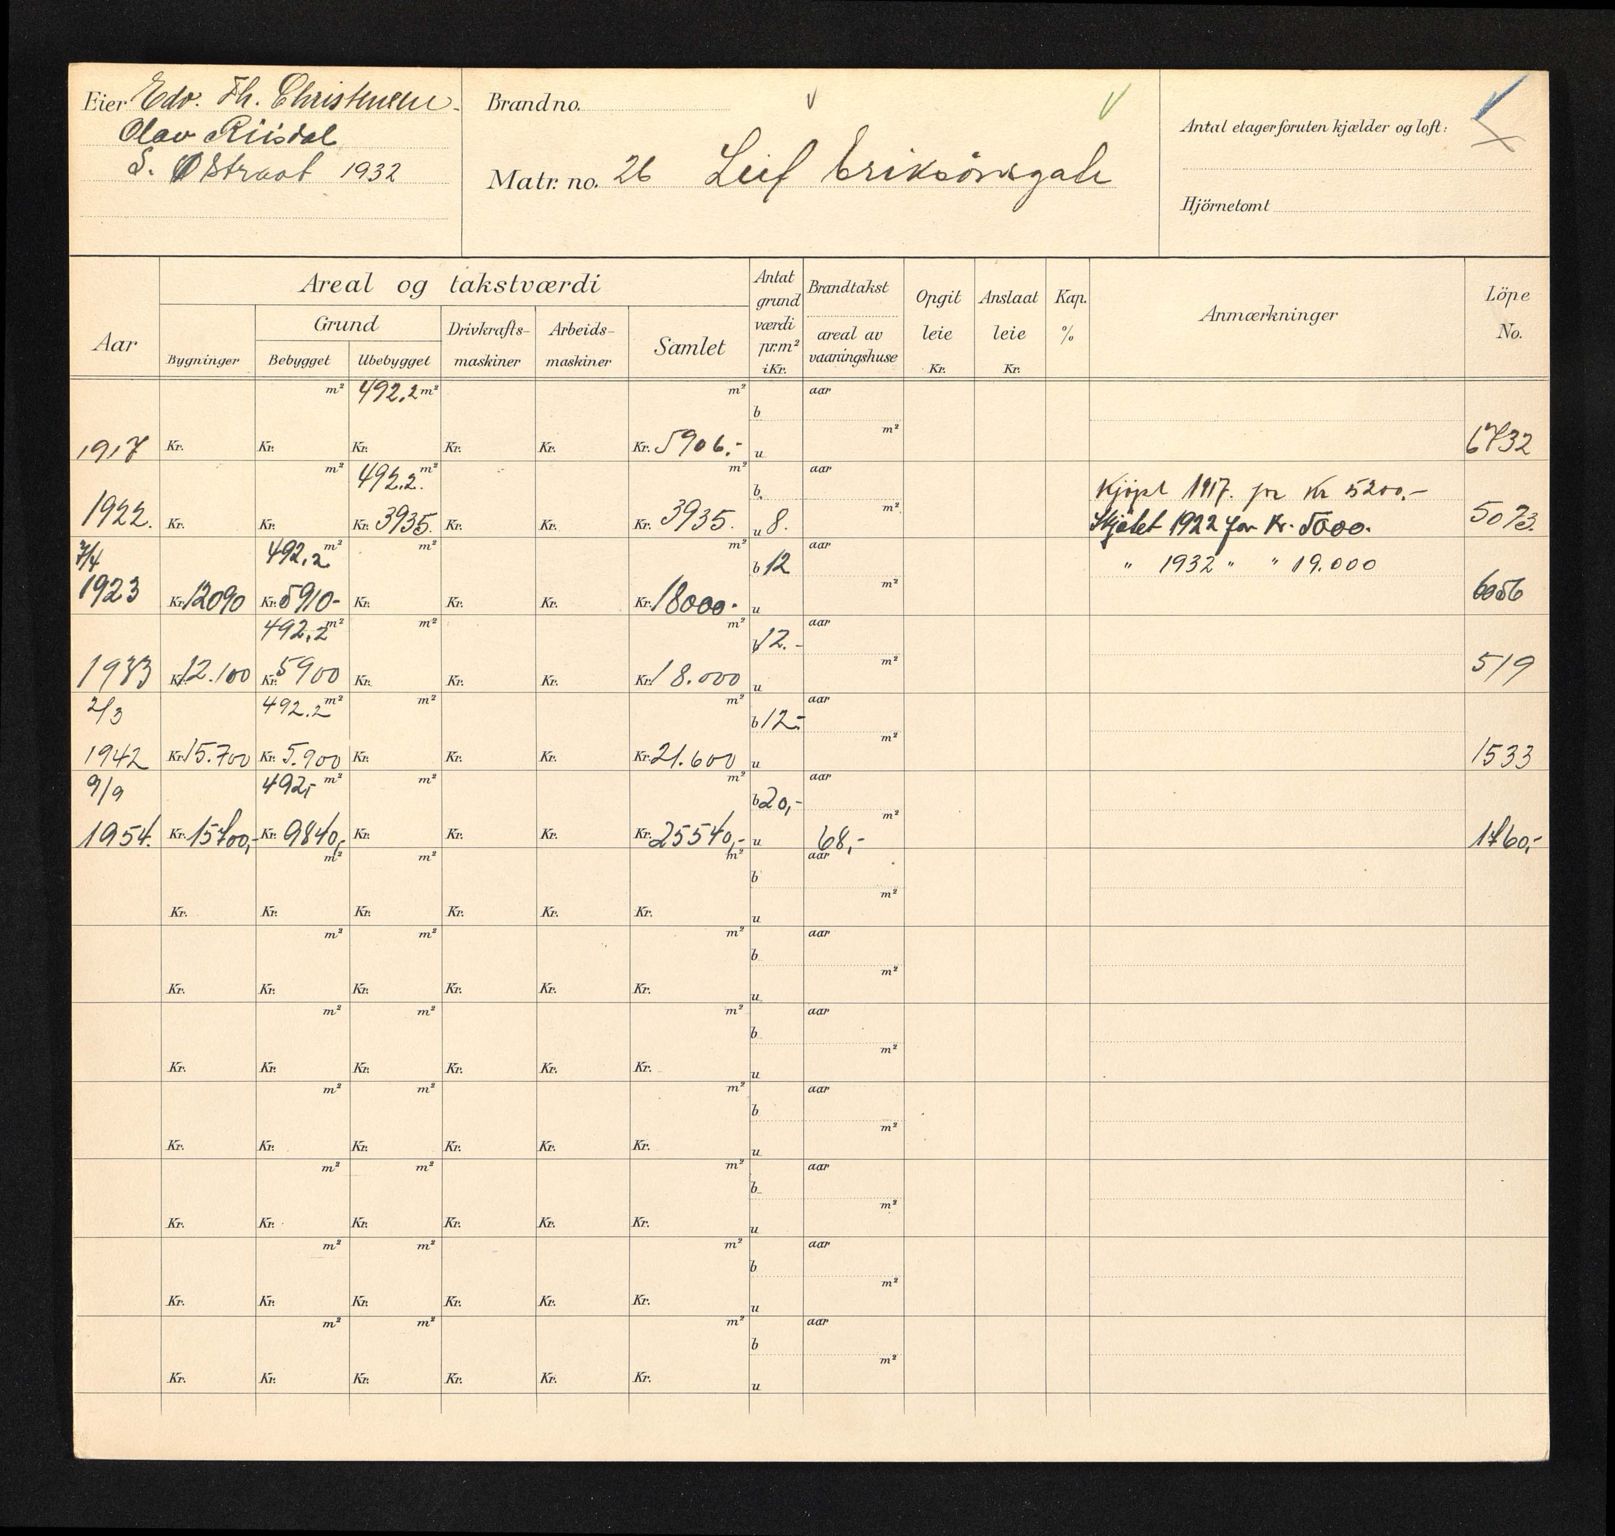 Eier Edv. Th. Christensen.
Olav Riisdal
S. Østraat 1932
Brand no.
Matr. no. 26 Leif Eriksönsgate
Antal etager foruten kjælder og loft:
Hjörnetomt
Aar
Areal og takstværdi
Bygninger
Grund
Bebygget
Ubebygget
Drivkrafts-
maskiner
Arbeids-
maskiner
Samlet
Antat
grund
værdi
pr. m²
i Kr.
Brandtakst
areal av
vaaningshuse
Opgit
leie
Kr.
Anslaat
leie
Kr.
Kap.
%
Anmærkninger
Löpe
No.
m² 492,2 m² m² b aar
1917 Kr. Kr. Kr. Kr. Kr. Kr. 5906.- u m² 6732
m² 492.2 m² m² b. aar Kjøpt 1917. for Kr 5200.-
1922. Kr. Kr. Kr. 3935. Kr. Kr. Kr. 3935. u 8. m² Skjøtet 1922 for Kr. 5000. 5073.
7/4 492,2 m² m² m² b 12 aar " 1932 " " 19.000
1923 Kr. 12090 Kr. 5910- Kr. Kr. Kr. Kr. 18000.- u m² 6056
492,2 m² m² m² b 12.- aar
1933 Kr. 12.100 Kr. 5900 Kr. Kr. Kr. Kr. 18.000 u m² 519
2/3 492.2 m² m² m² b 12.- aar
1942 Kr. 15.700 Kr. 5.900 Kr. Kr. Kr. Kr. 21.600 u m² 1533
9/9 492,- m² m² m² b 20,- aar
1954. Kr. 15700,- Kr. 9840,- Kr. Kr. Kr. Kr. 25540,- u 68,- m² 1760,-
m² m² m² b aar
Kr. Kr. Kr. Kr. Kr. Kr. u m²
m² m² m² b aar
Kr. Kr. Kr. Kr. Kr. Kr. u m²
m² m² m² b aar
Kr. Kr. Kr. Kr. Kr. Kr. u m²
m² m² m² b aar
Kr. Kr. Kr. Kr. Kr. Kr. u m²
m² m² m² b aar
Kr. Kr. Kr. Kr. Kr. Kr. u m²
m² m² m² b aar
Kr. Kr. Kr. Kr. Kr. Kr. u m²
m² m² m² b aar
Kr. Kr. Kr. Kr. Kr. Kr. u m²